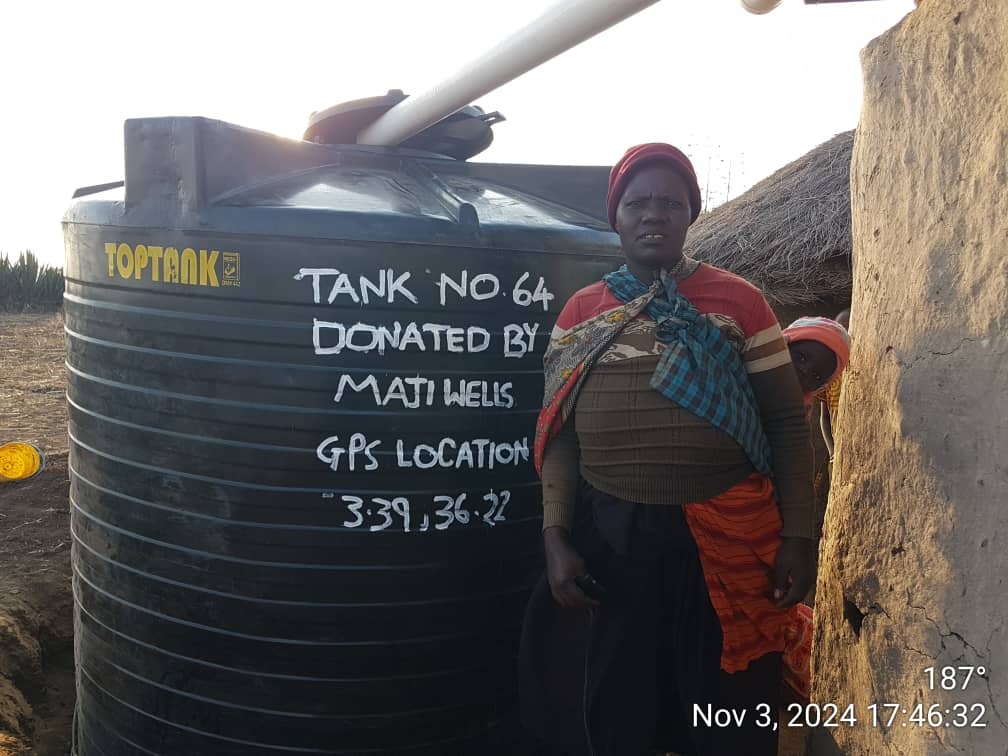 TOPTANK
TANK NO. 64
DONATED BY
MAJI WELLS
GPS LOCATION
-3.39, 36.22
187°
Nov 3, 2024 17:46:32